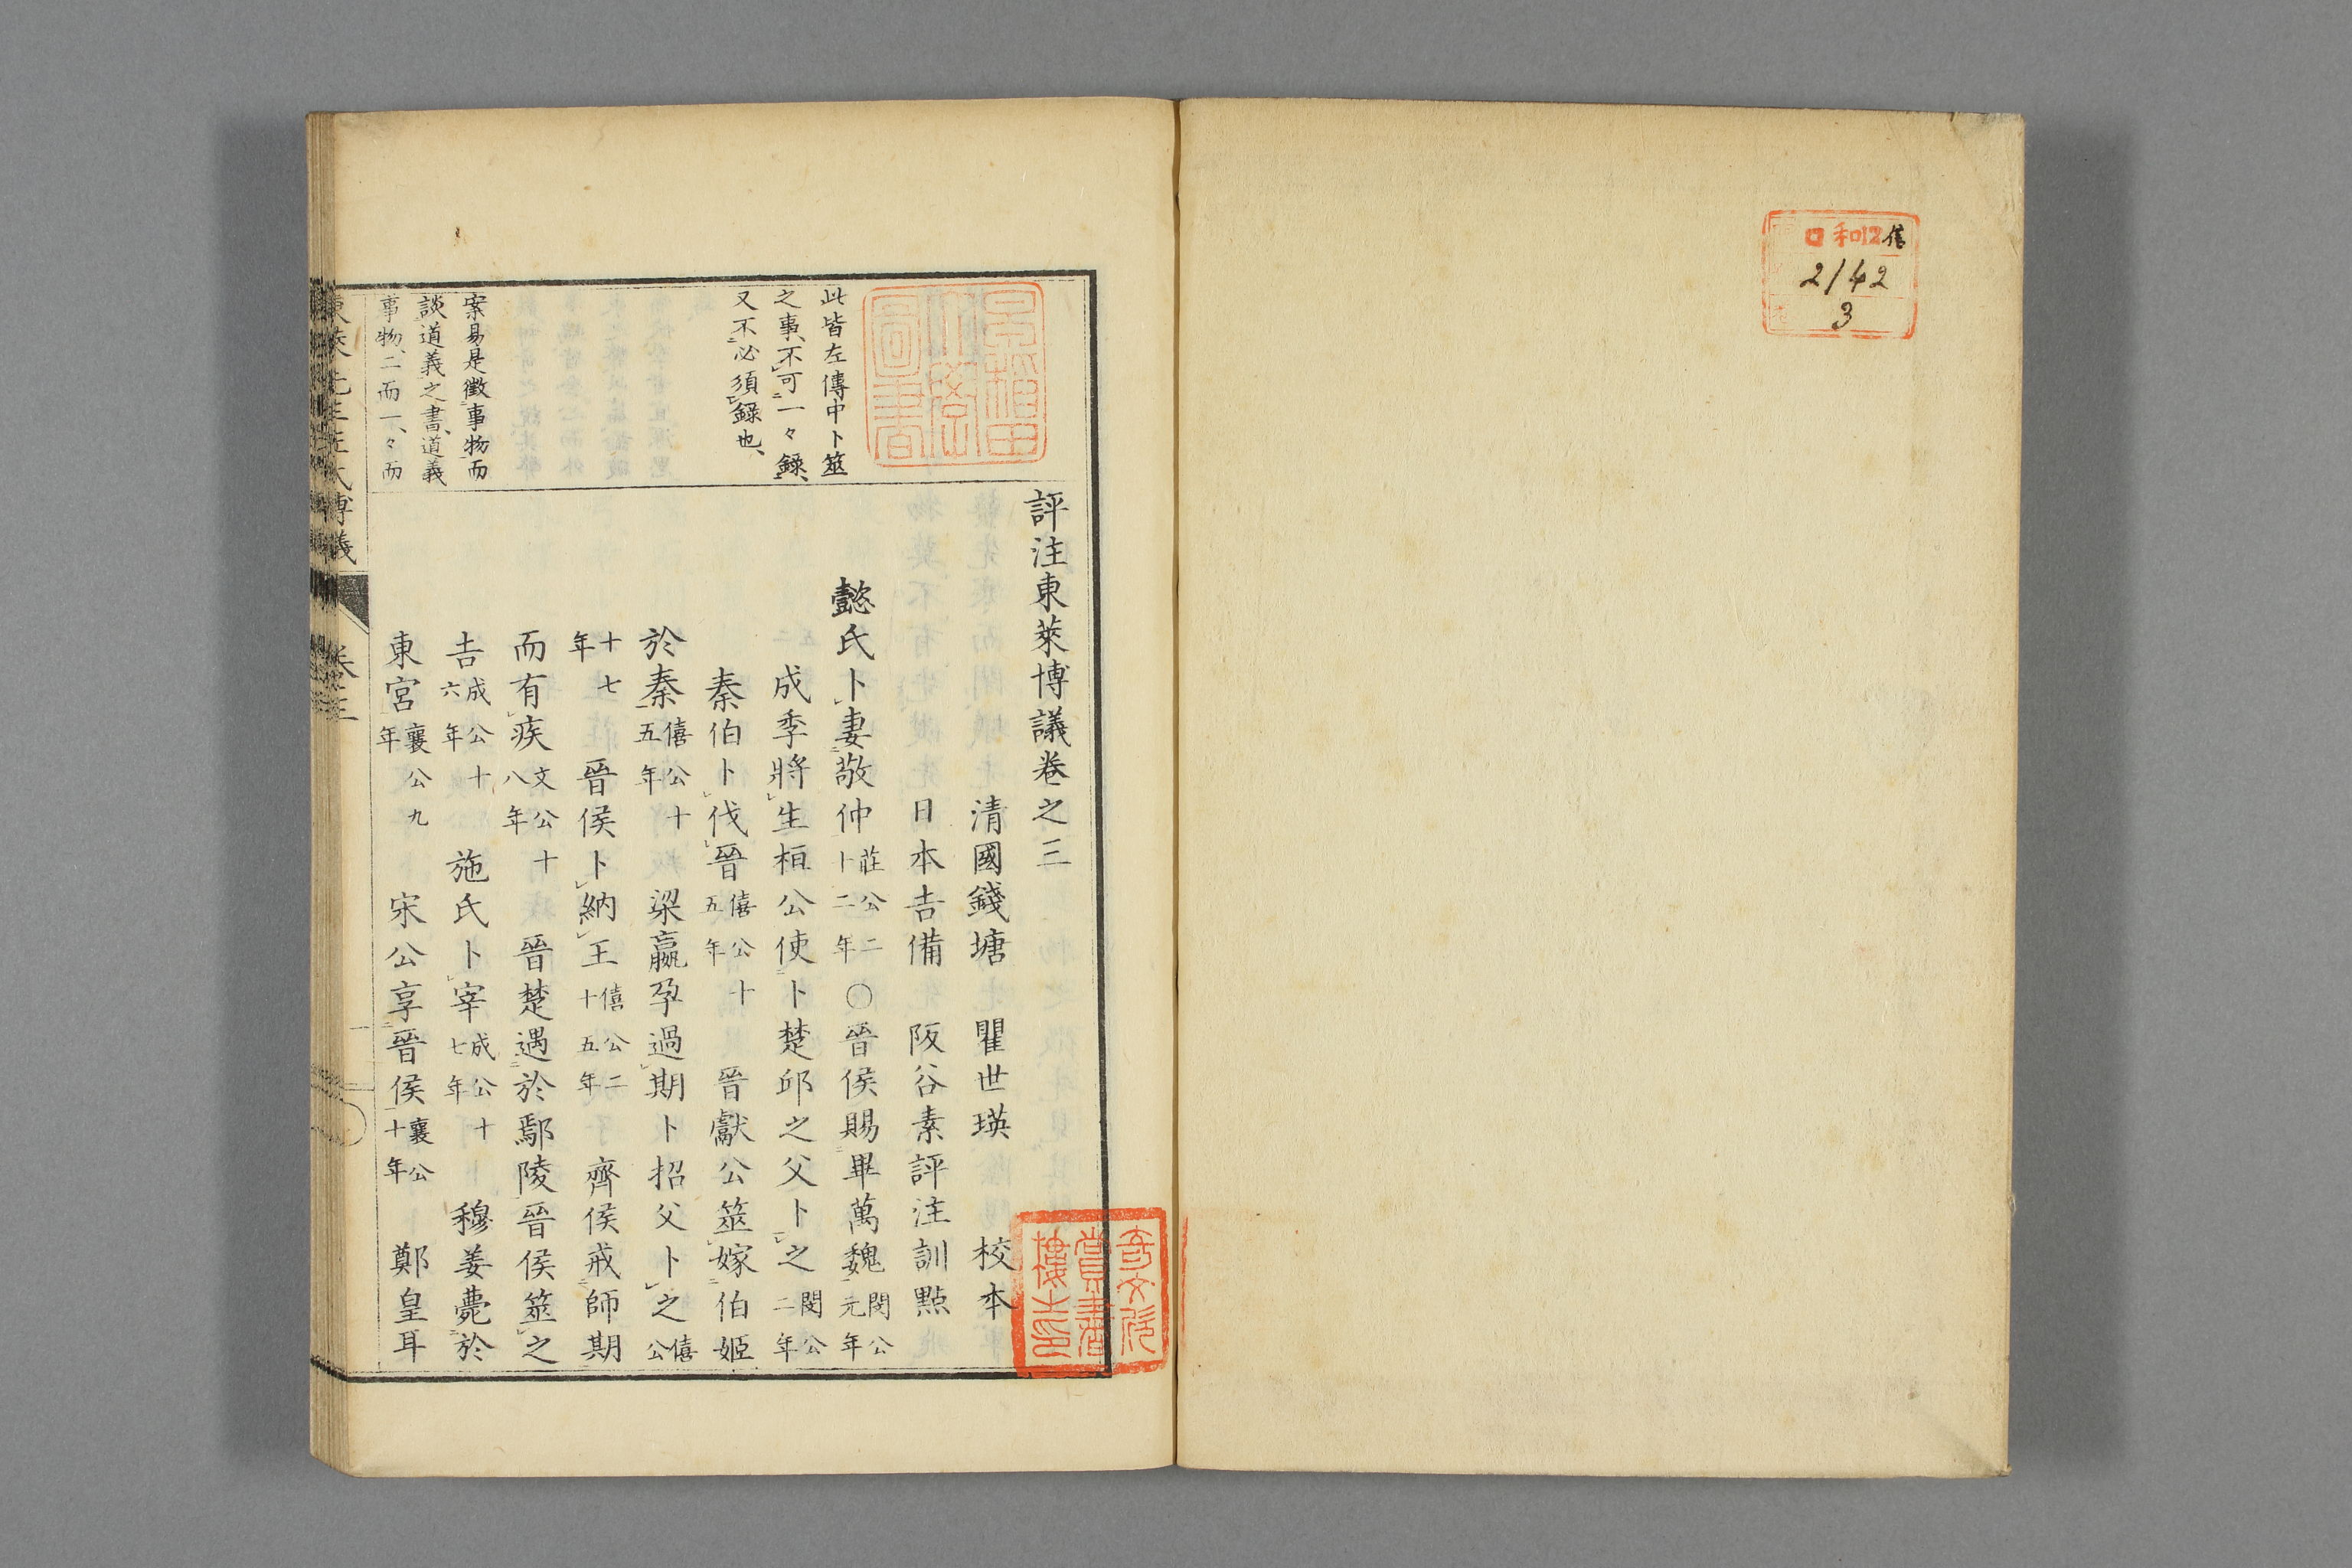 和12 信
2142
3
評注東萊博議卷之三
清國錢塘 瞿世瑛 校本
日本吉備 阪谷素評注訓點
懿氏卜妻敬仲莊公二十二年〇晉侯賜畢萬魏閔公元年
成季將生桓公使卜楚邱之父卜之閔公二年
秦伯卜伐晉僖公十五年 晉獻公筮嫁伯姬
於秦僖公十五年 梁嬴孕過期卜招父卜之僖公
十七年 晉侯卜納王僖公二十五年 齊侯戒師期
而有疾文公十八年 晉楚遇於鄢陵晉侯筮之
吉成公十六年 施氏卜宰成公十七年 穆姜薨於
東宮襄公九年 宋公享晉侯襄公十年 鄭皇耳
此皆左傳中卜筮
之事、不可一々錄、
又不必須錄也、
案易是徵事物而
談道義之書、道義
事物、二而一、々而
東萊先生左氏博議 卷三 一
奇文欣
賞書
樓之印
圖書